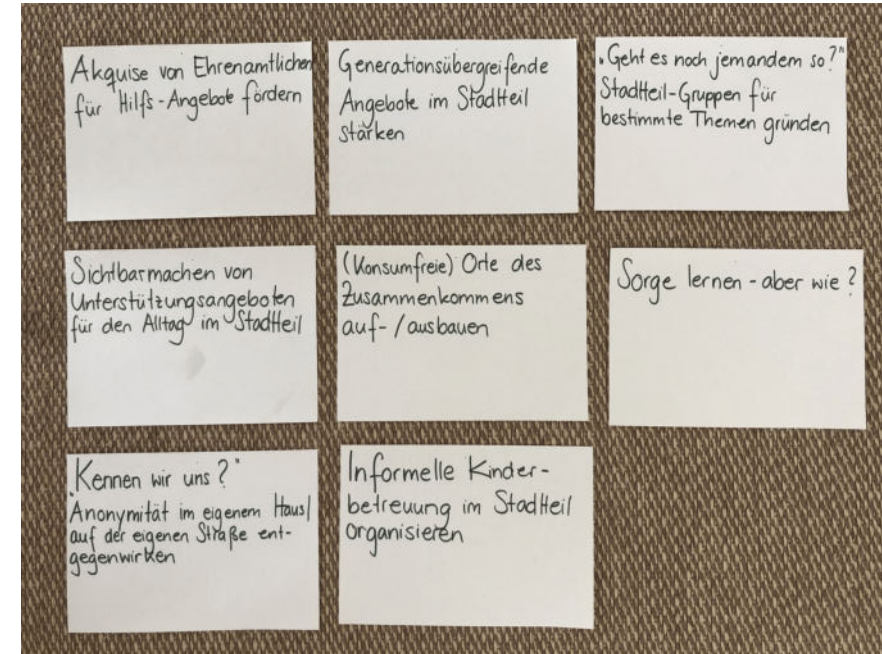 Akquise von Ehrenamtlichen
für Hilfs-Angebote fördern
Generationsübergreifende
Angebote im Stadtteil
stärken
„Geht es noch jemandem so?"
Stadtteil-Gruppen für
bestimmte Themen gründen
Sichtbarmachen von
Unterstützungsangeboten
für den Alltag im Stadtteil
(Konsumfreie) Orte des
Zusammenkommens
auf-/ausbauen
Sorge lernen - aber wie?
„Kennen wir uns?"
Anonymität im eigenem Haus/
auf der eigenen Straße ent-
gegenwirken
Informelle Kinder-
betreuung im Stadtteil
organisieren